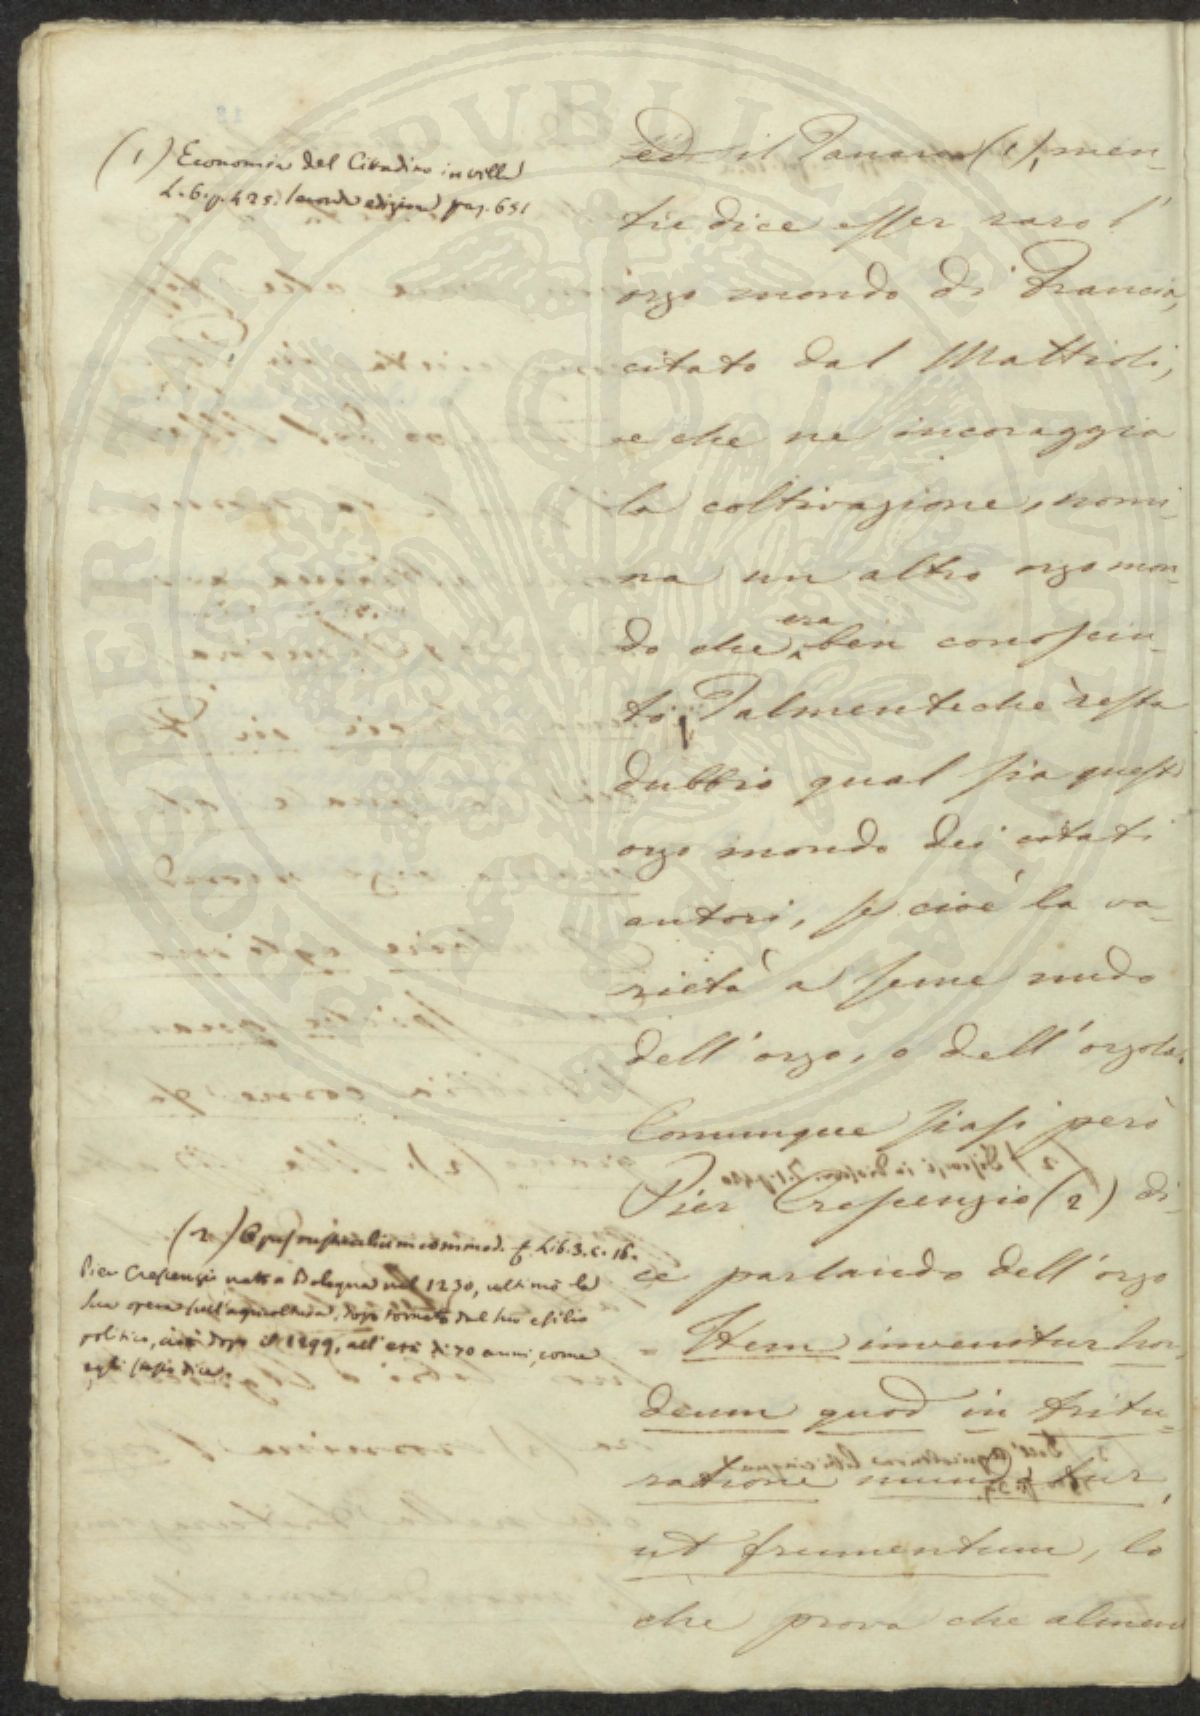 (1) Economia del Cittadino in villa
L. 6. p. 425. seconda edizione pag. 651
Ed il Tanara (1), men-
tre dice esser raro l'
orzo mondo di Francia,
citato dal Mattioli,
e che ne incoraggia
la coltivazione, nomi-
na un altro orzo mon-
do che era ben conosciu-
to; Talmenteche resta
dubbio qual sia questo
orzo mondo dei citati
autori, se cioè la va-
rietà a seme nudo
dell'orzo, o dell'orzola.
Comunque siasi però
Pier Crescenzio (2) di-
ce parlando dell'orzo
- Item invenitur hor-
deum quod in tritu-
ratione mundatur,
ut frumentum, lo
che prova che almeno
(2) Opus ruralium commod. Lib. 3. c. 16.
Pier Crescenzio nato a Bologna nel 1230, ultimò la
sua opera sull'agricoltura, dopo tornato dal suo esilio
politico, cioè dopo il 1299, all'età di 70 anni, come
egli stesso dice.
PROSPERITATI PVBLICAE AVGENDAE